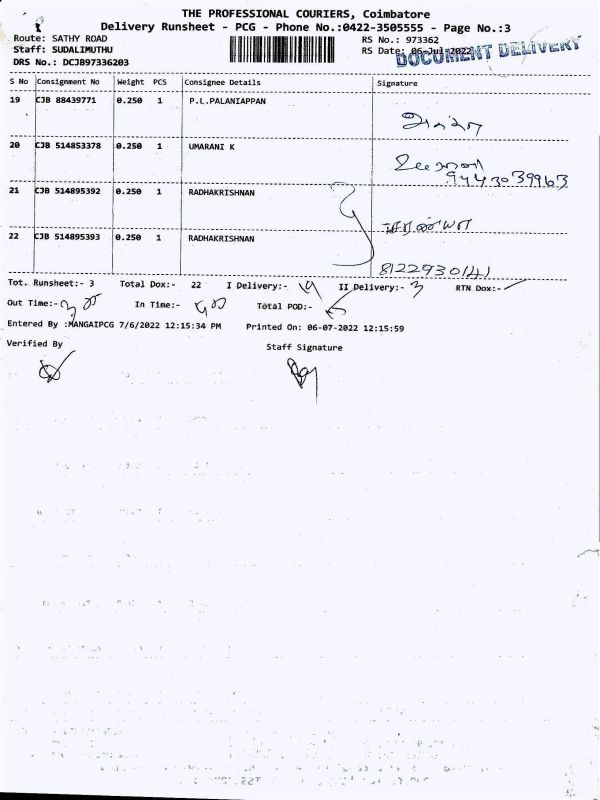 THE PROFESSIONAL COURIERS, Coimbatore
Delivery Runsheet - PCG - Phone No.:0422-3505555 - Page No.:3
Route: SATHY ROAD RS No.: 973362
Staff: SUDALIMUTHU RS Date: 06-Jul-2022
DOCUMENT DELIVERY
DRS No.: DCJB97336203
S No Consignment No Weight PCS Consignee Details Signature
19 CJB 88439771 0.250 1 P.L.PALANIAPPAN
20 CJB 514853378 0.250 1 UMARANI K
9443039963
21 CJB 514895392 0.250 1 RADHAKRISHNAN
22 CJB 514895393 0.250 1 RADHAKRISHNAN
8122930141
Tot. Runsheet:- 3 Total Dox:- 22 I Delivery:- 19 II Delivery:- 3 RTN Dox:-
Out Time:- In Time:- Total POD:-
Entered By :MANGAIPCG 7/6/2022 12:15:34 PM Printed On: 06-07-2022 12:15:59
Verified By Staff Signature